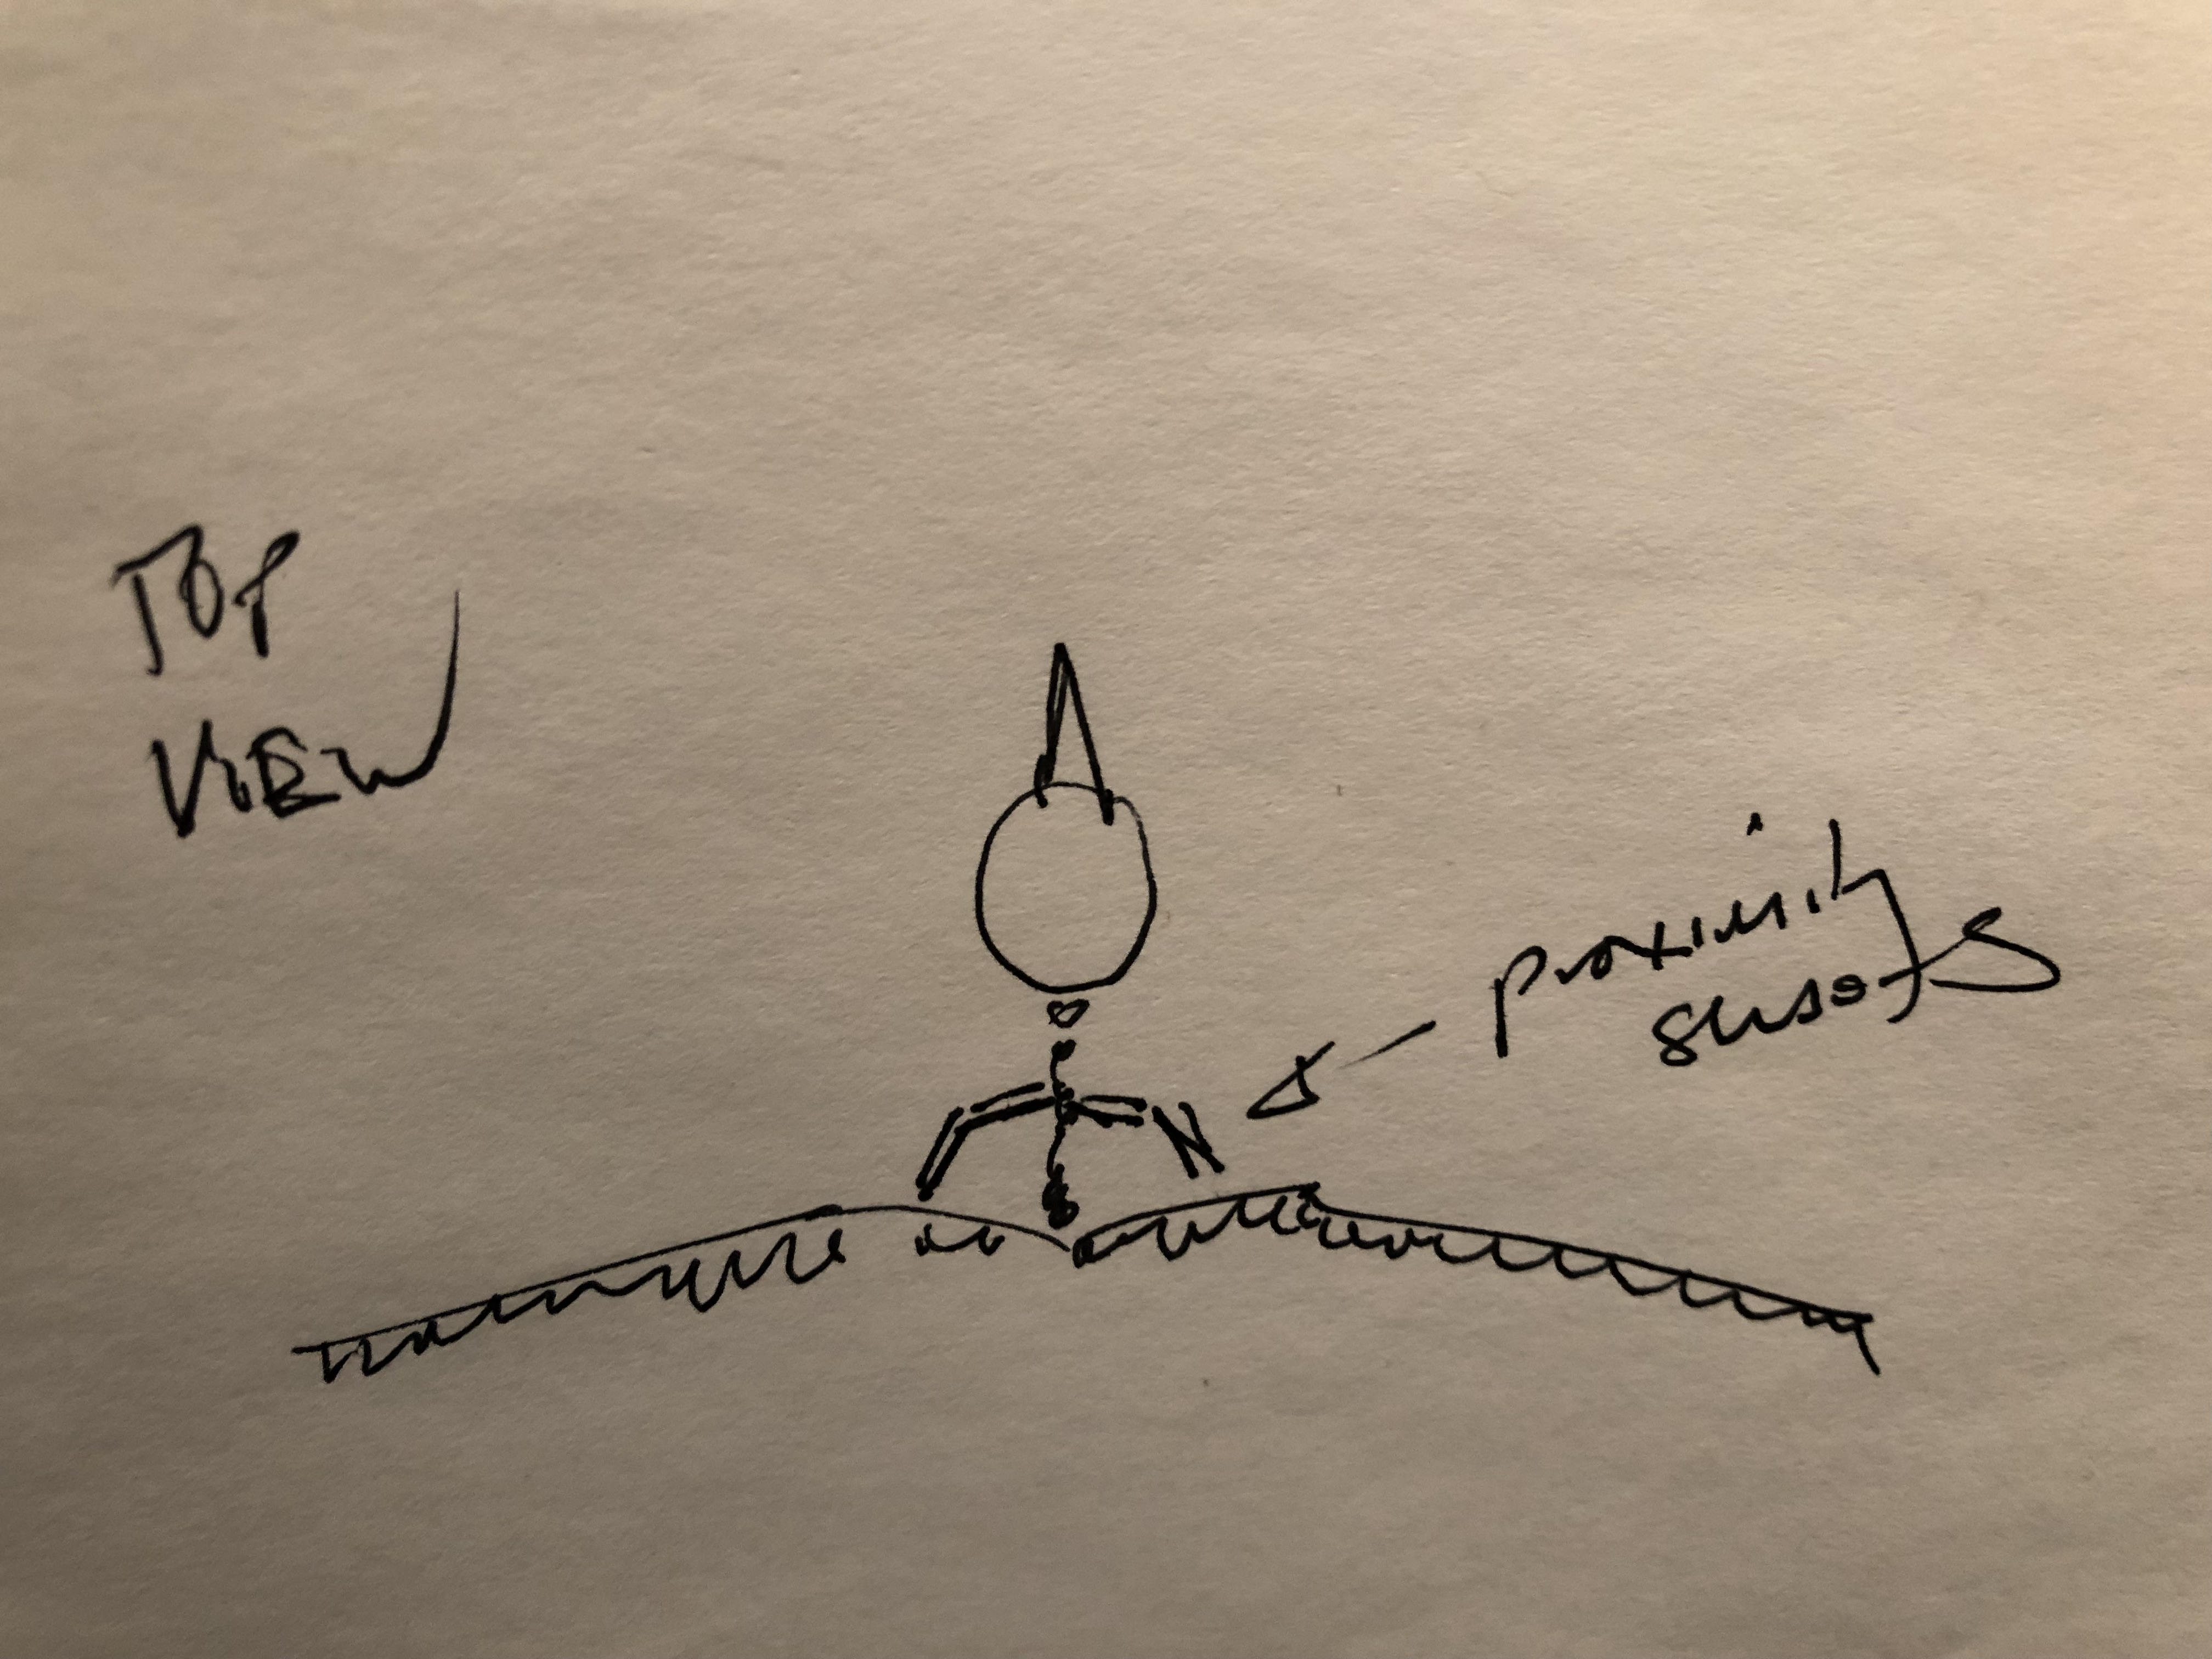 TOP
VIEW
proximity
sensors